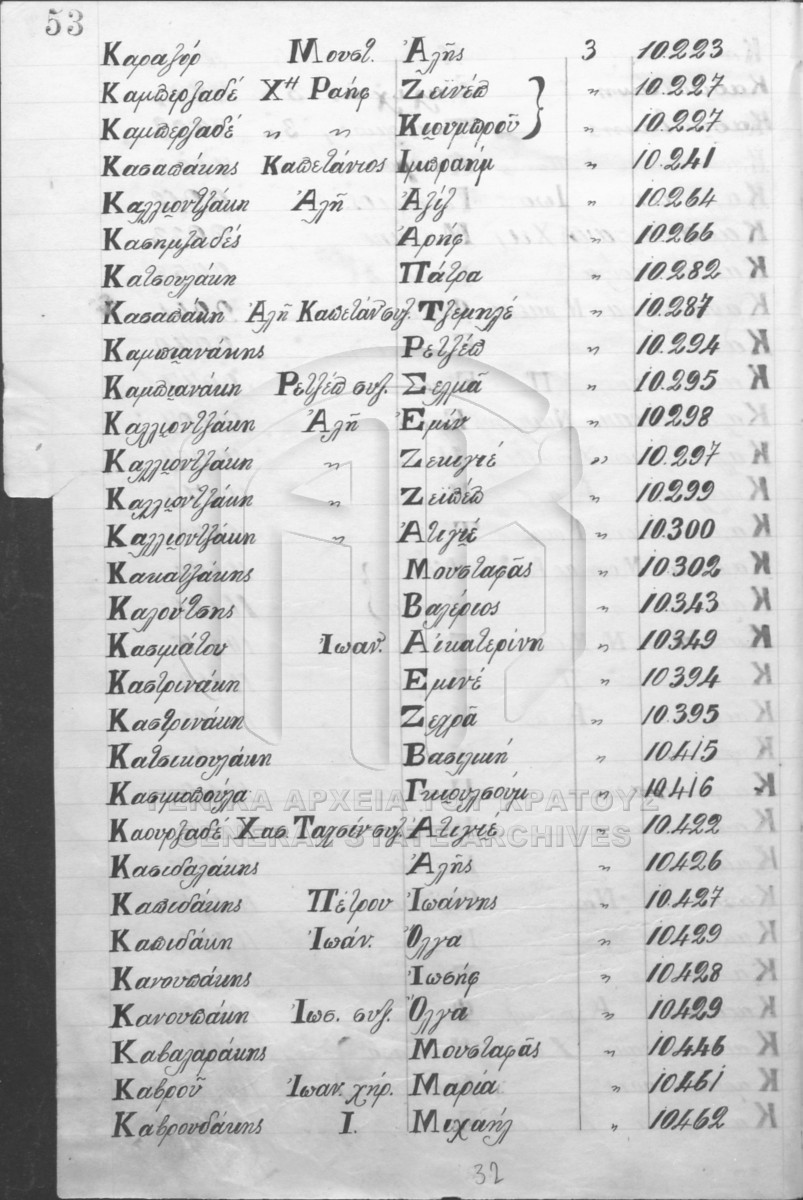 53
Καρατζόρ Μουστ. Ἀλῆς 3 10.223
Καμπερζαδέ Χʺ Ραήφ Ζεϊνέπ " 10.227
Καμπερζαδέ " " Κιουμπροῦ " 10.227
Κασαπάκης Καπετάνιος Ιμπραήμ " 10.241
Καλλιοντζάκη Ἀλῆ Ἀζίζ " 10.264
Κασημζαδές Ἀρήφ " 10.266
Κατσουλάκη Πάτρα " 10.282 Κ
Κασαπάκη Ἀλῆ Καπετάν συζ. Τζεμηλέ " 10.287
Καμπιανάκης Ρετζέπ " 10.294 Κ
Καμπιανάκη Ρετζέπ συζ. Σελμᾶ " 10.295 Κ
Καλλιοντζάκη Ἀλῆ Ἐμίν " 10298
Καλλιοντζάκη " Ζεκιγιέ " 10.297 Κ
Καλλιοντζάκη " Ζεϊπέπ " 10.299 Κ
Καλλιοντζάκη " Ἀτιγιέ " 10.300 Κ
Κακατζάκης Μουσταφᾶς " 10.302 Κ
Καλούτσης Βαλέριος " 10.343 Κ
Κασιμάτου Ἰωάν. Αἰκατερίνη " 10349 Κ
Καστρινάκη Εμινέ " 10394 Κ
Καστρινάκη Ζεχρᾶ " 10.395 Κ
Κατσικουλάκη Βασιλική " 10.415 Κ
Κασιμοπούλα Γκιουλσούμ " 10.416 Κ
ΓΕΝΙΚΑ ΑΡΧΕΙΑ ΤΟΥ ΚΡΑΤΟΥΣ
Καουρζαδέ Χασ. Ταχσίν συζ. Ἀτιγιέ " 10.422 Κ
GENERAL STATE ARCHIVES
Κασιδαλάκης Ἀλῆς " 10426 Κ
Καπιδάκης Πέτρου Ἰωάννης " 10.427 Κ
Καπιδάκη Ἰωάν. Ὄλγα " 10429 Κ
Κανουπάκης Ἰωσήφ " 10.428 Κ
Κανουπάκη Ἰωσ. συζ. Ὄλγα " 10.429 Κ
Καβαλαράκης Μουσταφᾶς " 10446 Κ
Καβροῦ Ἰωαν. χήρ. Μαρία " 10461 Κ
Καβρουδάκης Ι. Μιχαήλ " 10462 Κ
32